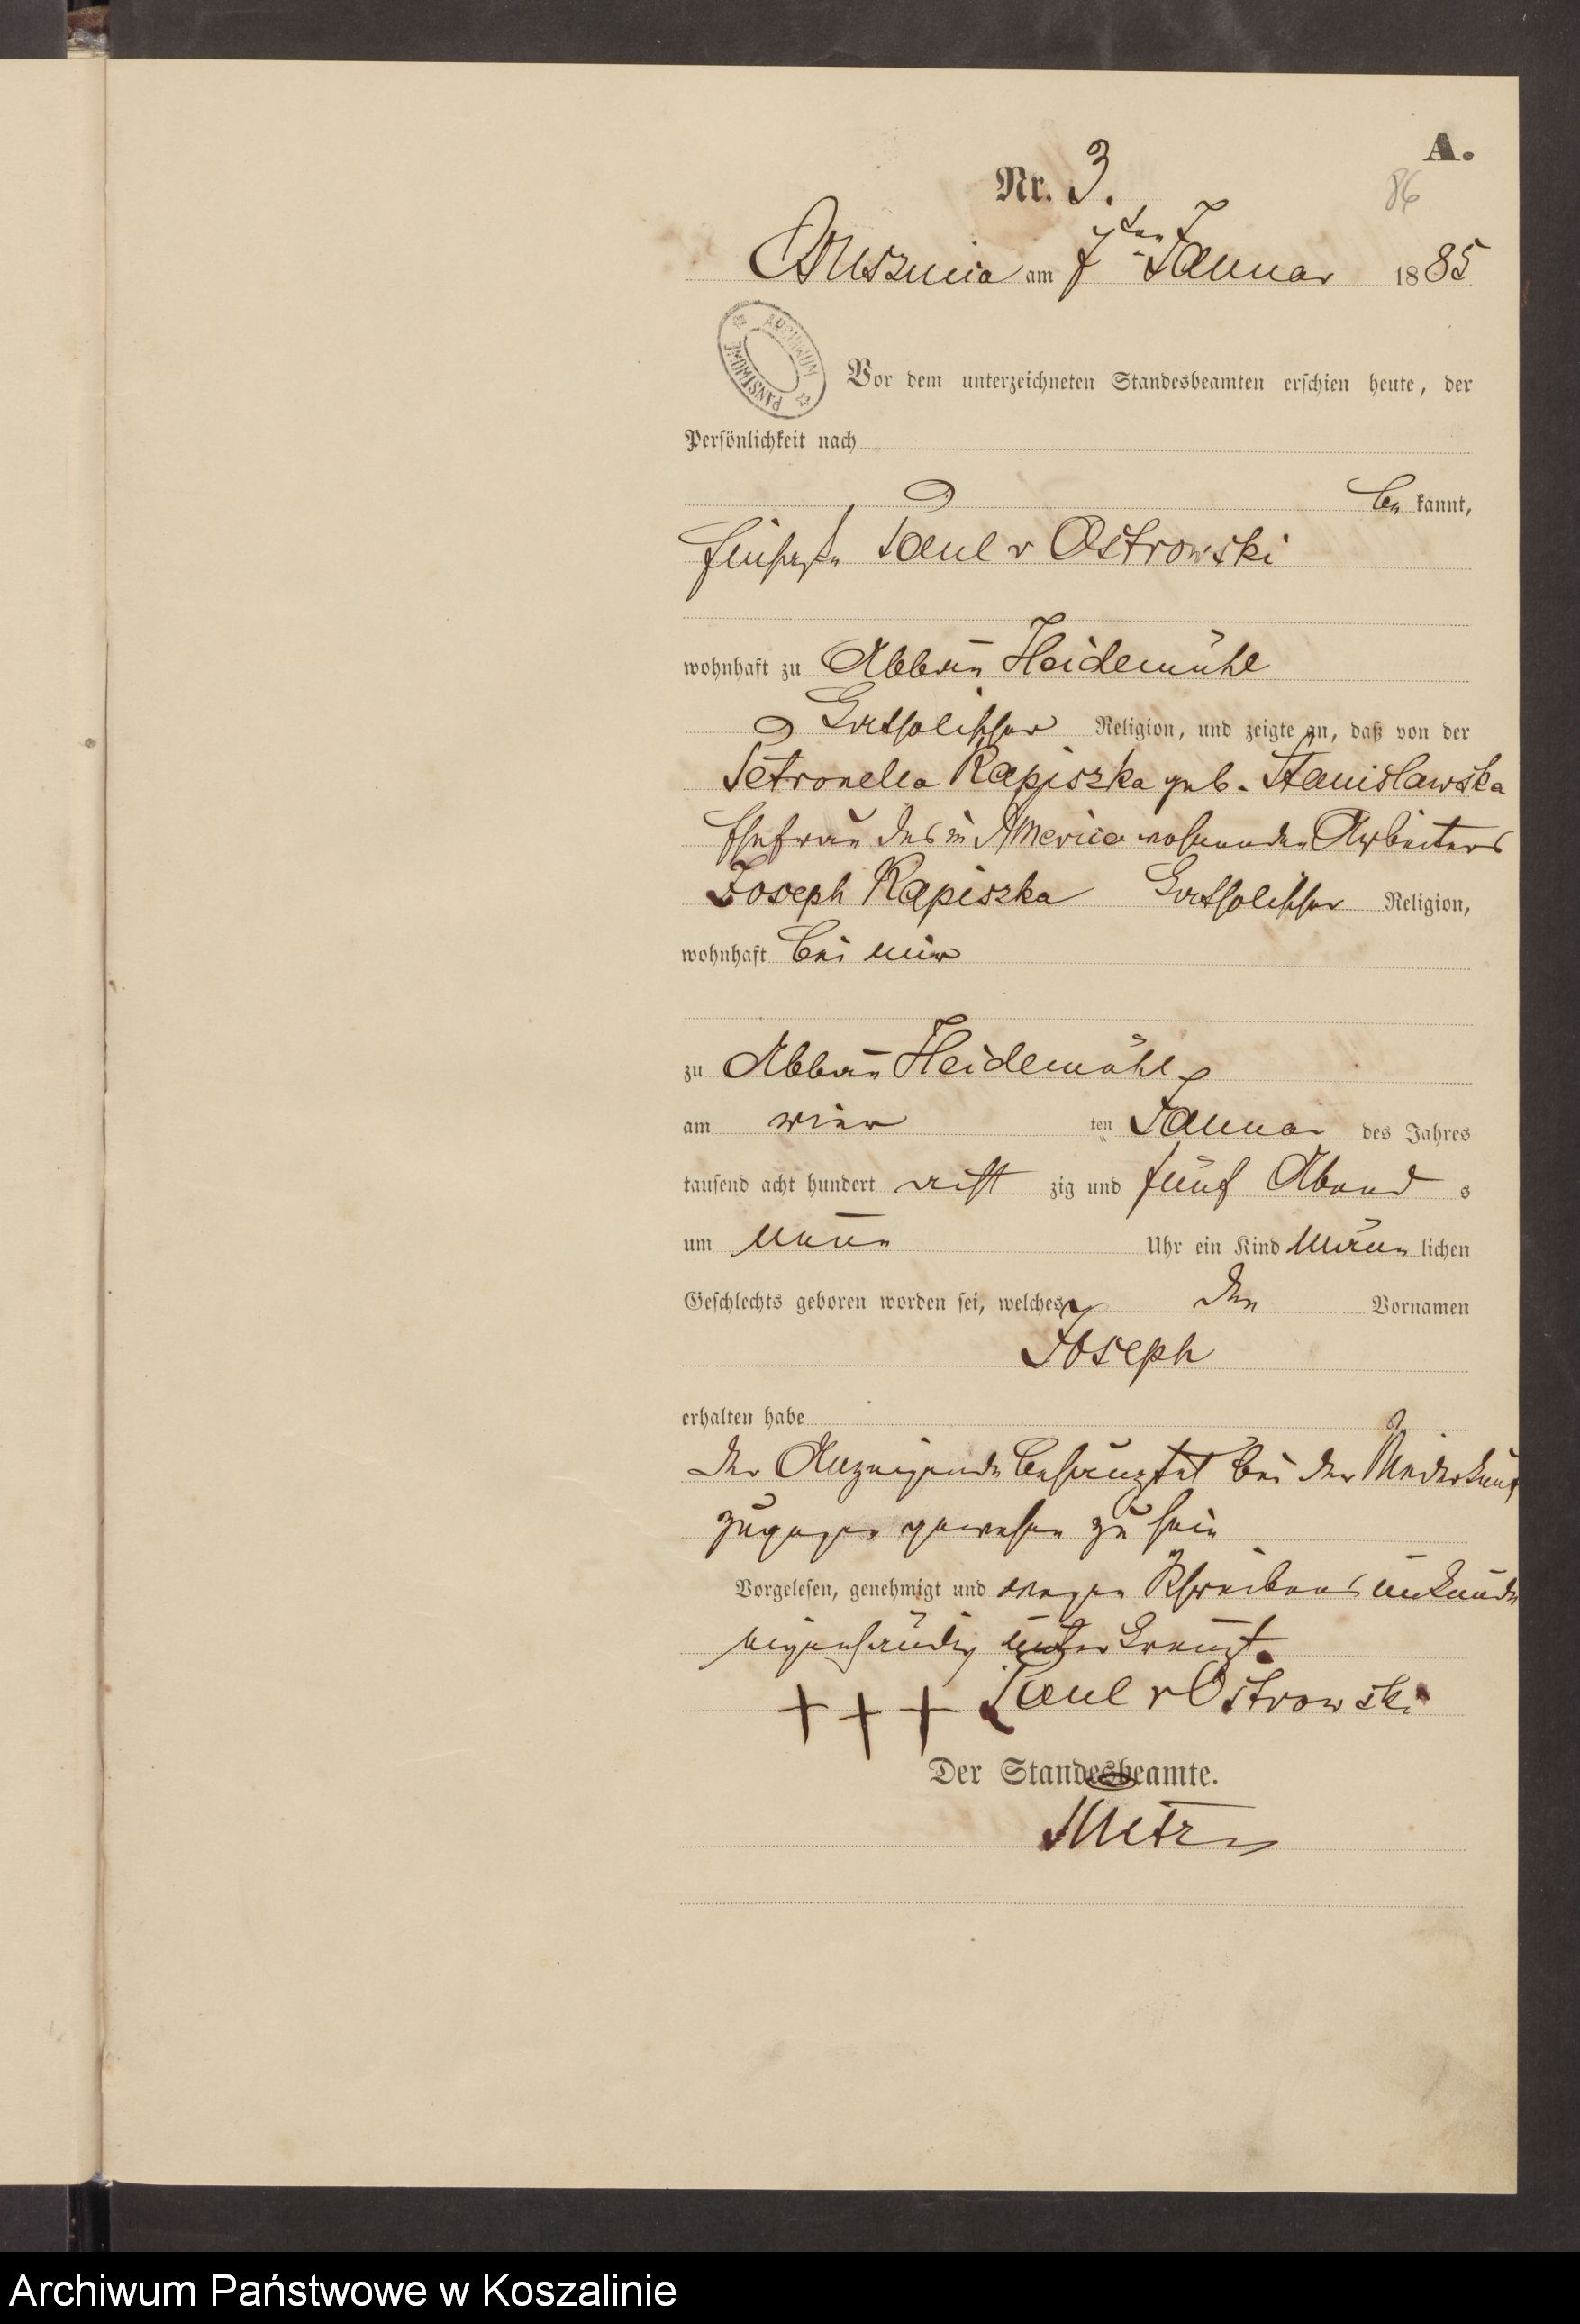 A.
Nr. 3.
86
am 7ten Januar 1885
ARCHIWUM PAŃSTWOWE
Vor dem unterzeichneten Standesbeamten erschien heute, der
Persönlichkeit nach
be kannt,
Paul v Ostrowski
wohnhaft zu Abbau Heidemühl
katholischer Religion, und zeigte an, daß von der
Petronella Rapiszka geb. Stanislawska
Ehefrau des in America wohnenden Arbeiters
Joseph Rapiszka katholischer Religion,
wohnhaft bei mir
zu Abbau Heidemühl
am vier ten Januar des Jahres
tausend acht hundert acht zig und fünf Abend s
um neun Uhr ein Kind männ lichen
Geschlechts geboren worden sei, welches den Vornamen
Joseph
erhalten habe
Der Anzeigende behauptet bei der Niederkunft
zugegen gewesen zu sein
Vorgelesen, genehmigt und wegen Schreibens unkunde
eigenhändig unterkreuzt.
+ + + Paul v Ostrowski
Der Standesbeamte.
Archiwum Państwowe w Koszalinie